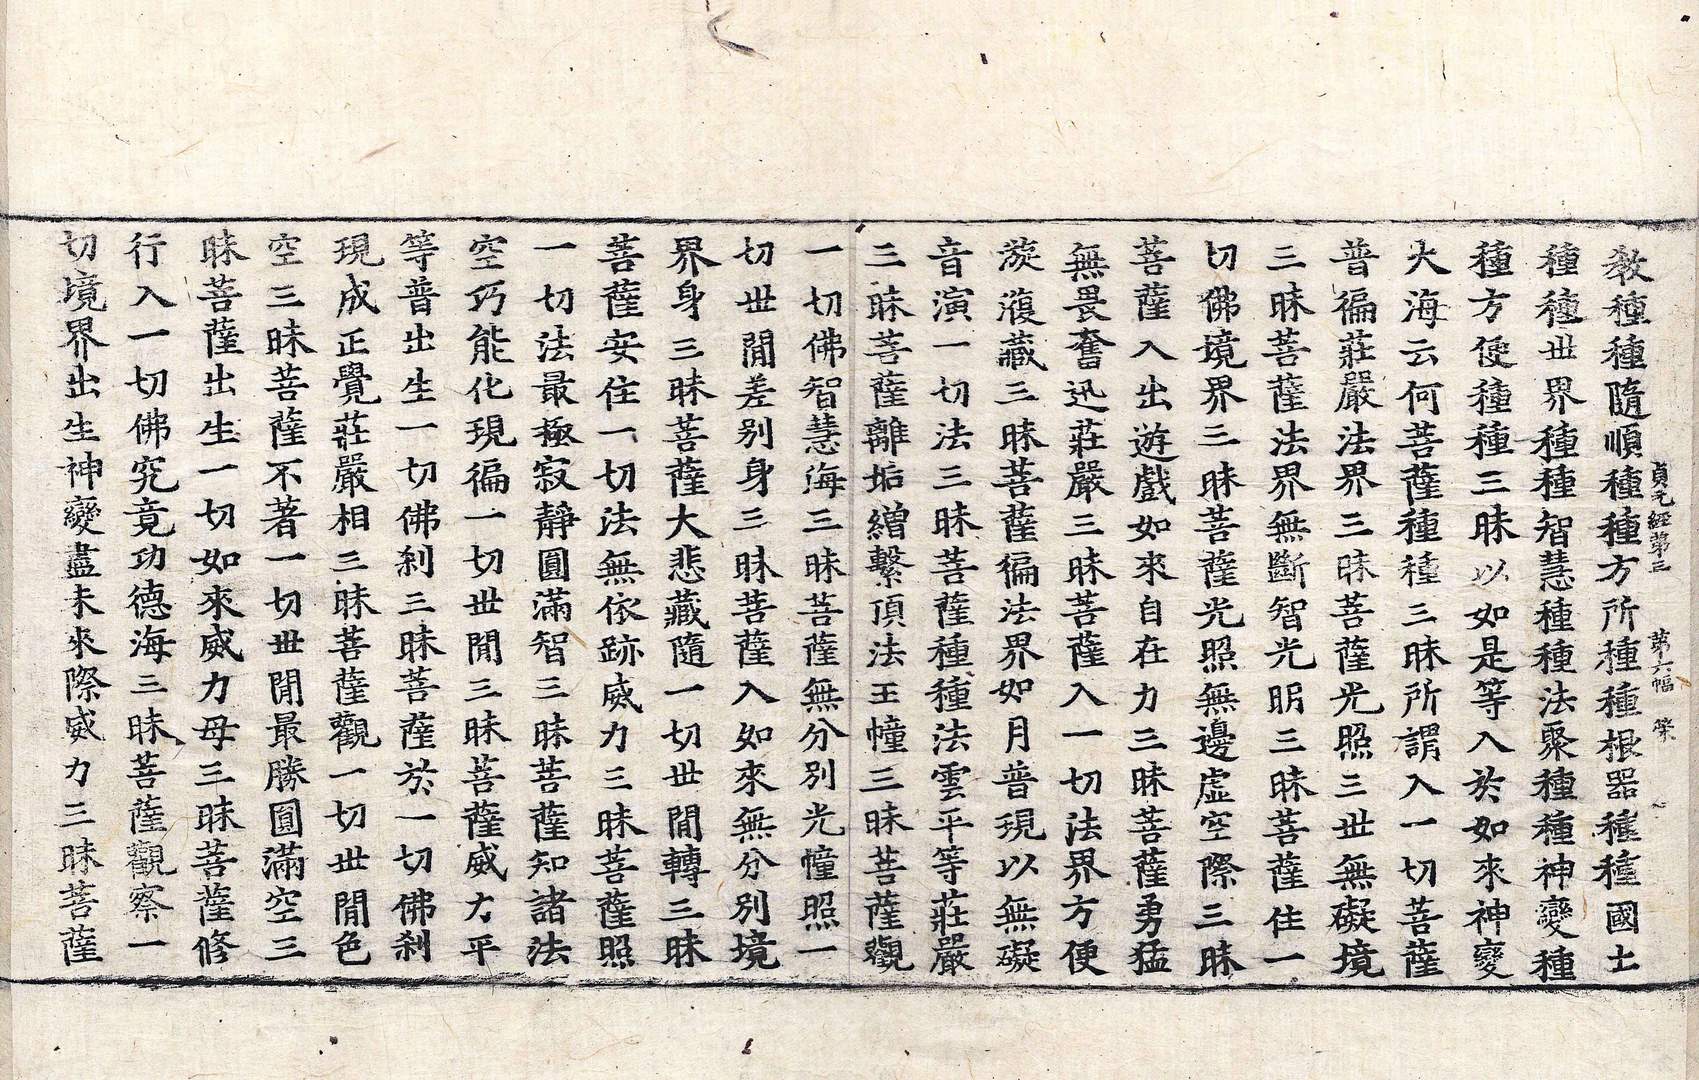 貞元經第三　第六幅
教種種隨順種種方所種種根器種種國土
種種世界種種智慧種種法聚種種神變種
種方便種種三昧以如是等入於如來神變
大海云何菩薩種種三昧所謂入一切菩薩
普徧莊嚴法界三昧菩薩光照三世無礙境
三昧菩薩法界無斷智光明三昧菩薩住一
切佛境界三昧菩薩光照無邊虛空際三昧
菩薩入出遊戲如來自在力三昧菩薩勇猛
無畏奮迅莊嚴三昧菩薩入一切法界方便
漩澓藏三昧菩薩徧法界如月普現以無礙
音演一切法三昧菩薩種種法雲平等莊嚴
三昧菩薩離垢繒繫頂法王幢三昧菩薩觀
一切佛智慧海三昧菩薩無分別光幢照一
切世閒差別身三昧菩薩入如來無分別境
界身三昧菩薩大悲藏隨一切世閒轉三昧
菩薩安住一切法無依跡威力三昧菩薩照
一切法最極寂靜圓滿智三昧菩薩知諸法
空巧能化現徧一切世閒三昧菩薩威力平
等普出生一切佛刹三昧菩薩於一切佛刹
現成正覺莊嚴相三昧菩薩觀一切世閒色
空三昧菩薩不著一切世閒最勝圓滿空三
昧菩薩出生一切如來威力母三昧菩薩修
行入一切佛究竟功德海三昧菩薩觀察一
切境界出生神變盡未來際威力三昧菩薩